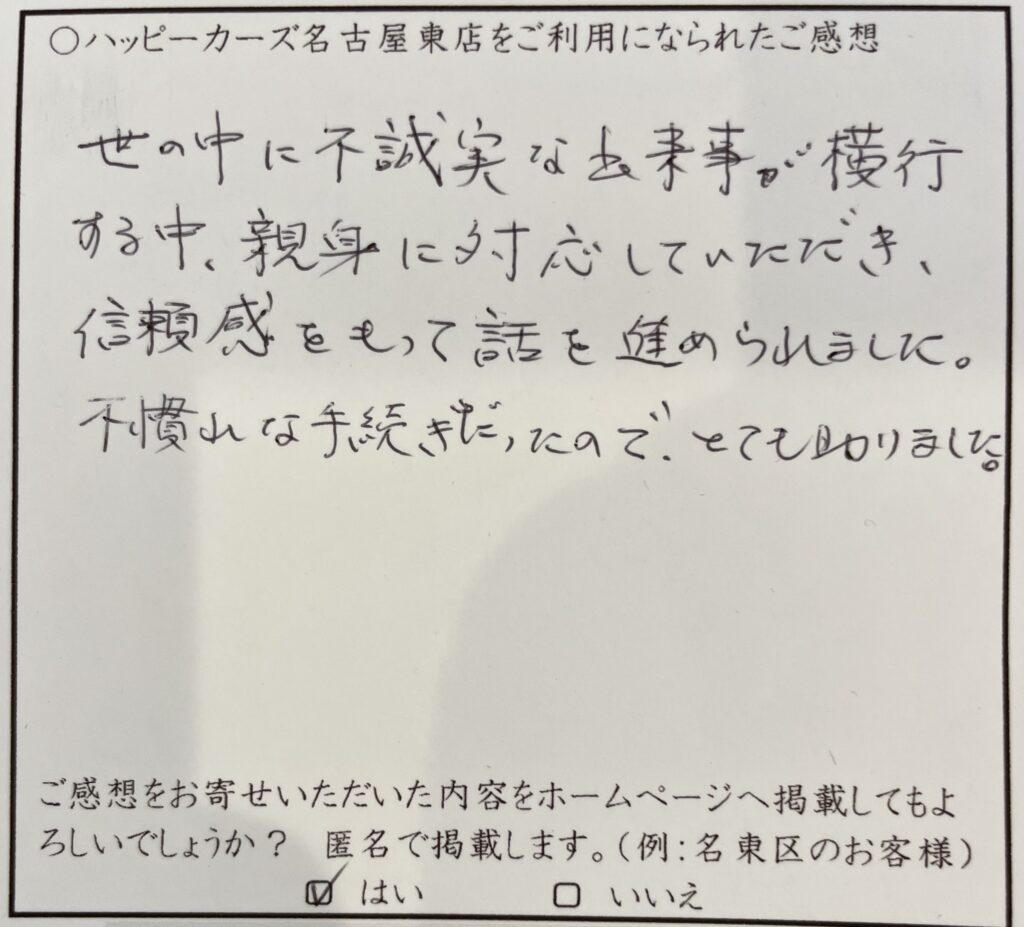 ○ハッピーカーズ名古屋東店をご利用になられたご感想
世の中に不誠実な出来事が横行
する中、親身に対応していただき、
信頼感をもって話を進められました。
不慣れな手続きだったので、とても助りました。
ご感想をお寄せいただいた内容をホームページへ掲載してもよ
ろしいでしょうか？　匿名で掲載します。（例：名東区のお客様）
☑ はい　　□ いいえ